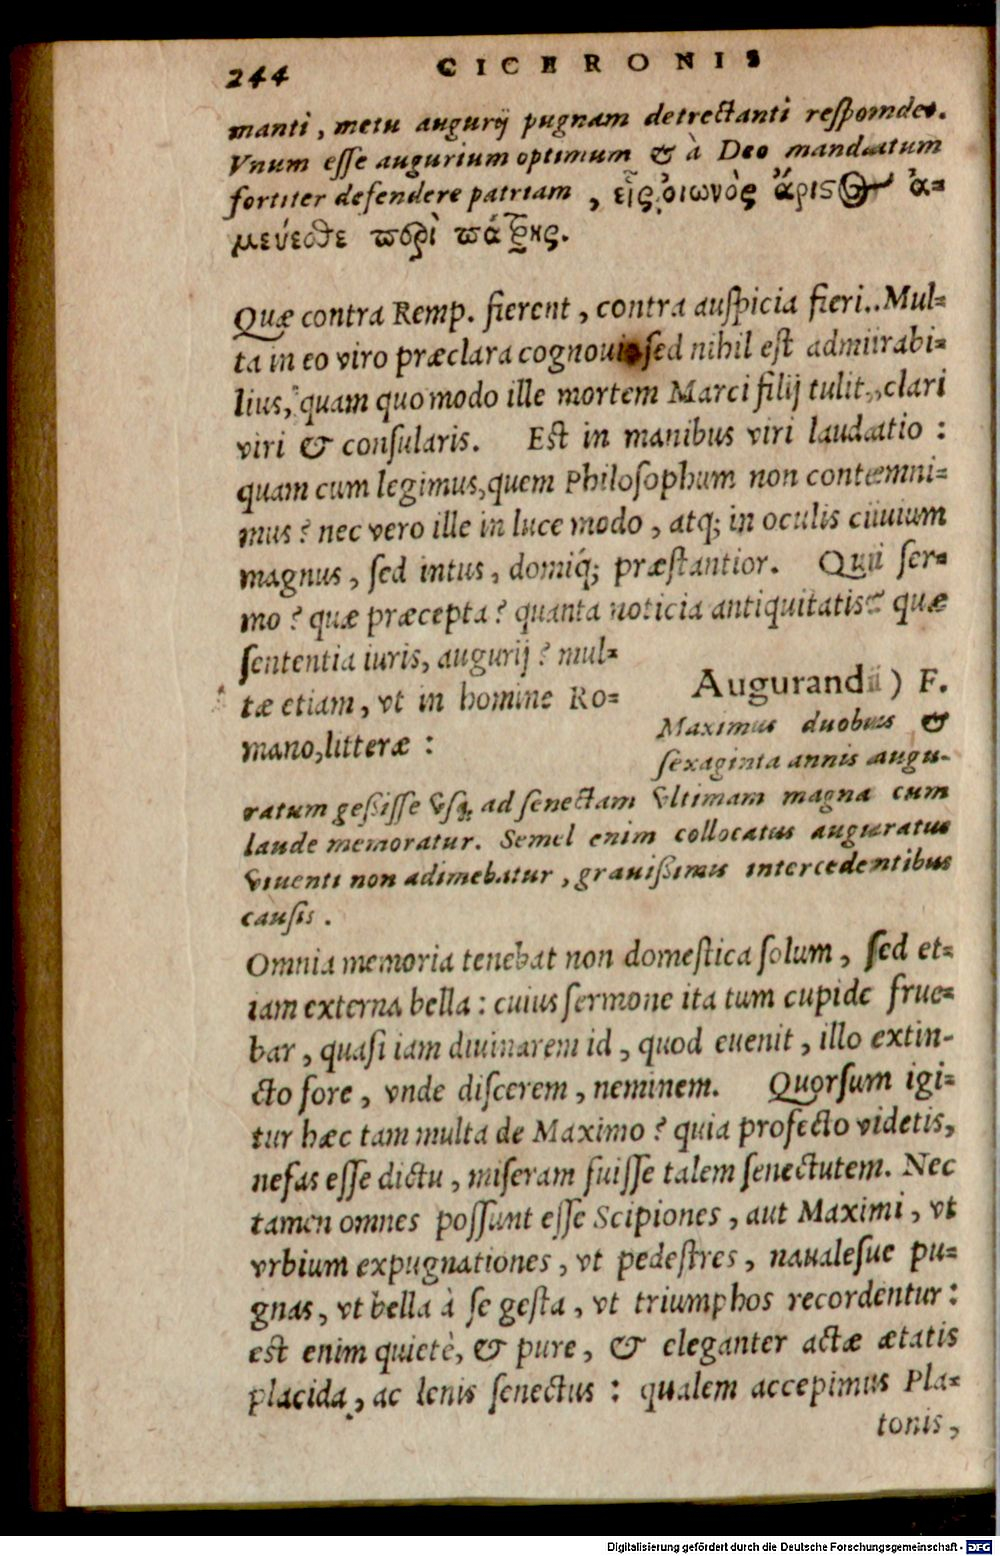 244 CICERONIS
manti, metu augurij pugnam detrectanti respomdet.
Vnum esse augurium optimum & à Deo mandatum
fortiter defendere patriam, εἷς οἰωνὸς ἄριστος ἀ=
μεύεσθε περὶ πάτρης.
Quæ contra Remp. fierent, contra auspicia fieri. Mul=
ta in eo viro præclara cognoui: sed nihil est admirabi=
lius, quam quomodo ille mortem Marci filij tulit, clari
viri & consularis. Est in manibus viri laudatio:
quam cum legimus, quem Philosophum non contemni=
mus? nec vero ille in luce modo, atq; in oculis ciuium
magnus, sed intus, domiq́; præstantior. Qui ser=
mo? quæ præcepta? quanta noticia antiquitatis? quæ
sententia iuris, augurij? mul=
tæ etiam, vt in homine Ro=
mano, litteræ:
Augurandi) F.
Maximus duobus &
sexaginta annis augu-
ratum gessisse vsq; ad senectam vltimam magna cum
laude memoratur. Semel enim collocatus auguratus
viuenti non adimebatur, grauissimis intercedentibus
causis.
Omnia memoria tenebat non domestica solum, sed et=
iam externa bella: cuius sermone ita tum cupide frue=
bar, quasi iam diuinarem id, quod euenit, illo extin-
cto fore, vnde discerem, neminem. Quorsum igi=
tur hæc tam multa de Maximo? quia profecto videtis,
nefas esse dictu, miseram fuisse talem senectutem. Nec
tamen omnes possunt esse Scipiones, aut Maximi, vt
vrbium expugnationes, vt pedestres, naualesue pu=
gnas, vt bella à se gesta, vt triumphos recordentur:
est enim quietè, & pure, & eleganter actæ ætatis
placida, ac lenis senectus: qualem accepimus Pla=
tonis,
Digitalisierung gefördert durch die Deutsche Forschungsgemeinschaft - DFG